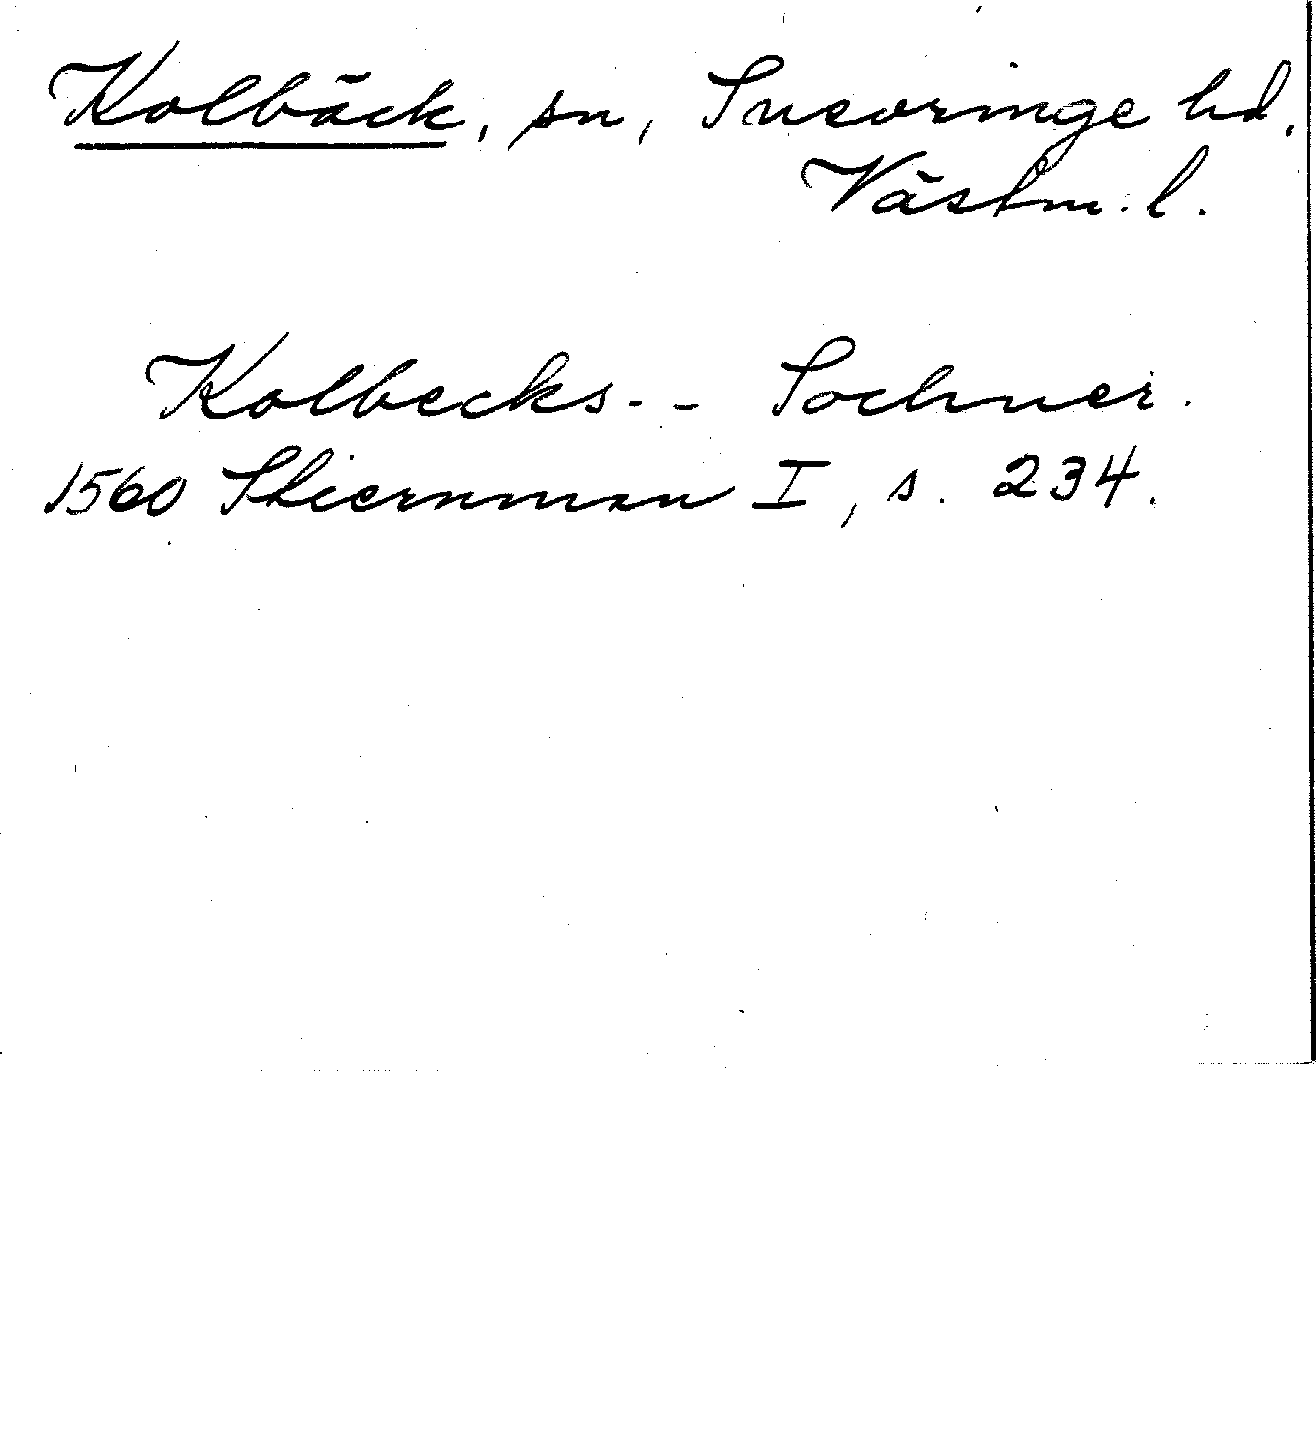 Kolbäck, sn, Snevringe hd,
Västm. l.
Kolbecks - - Sochner.
1560 Stiernman I, s. 234.